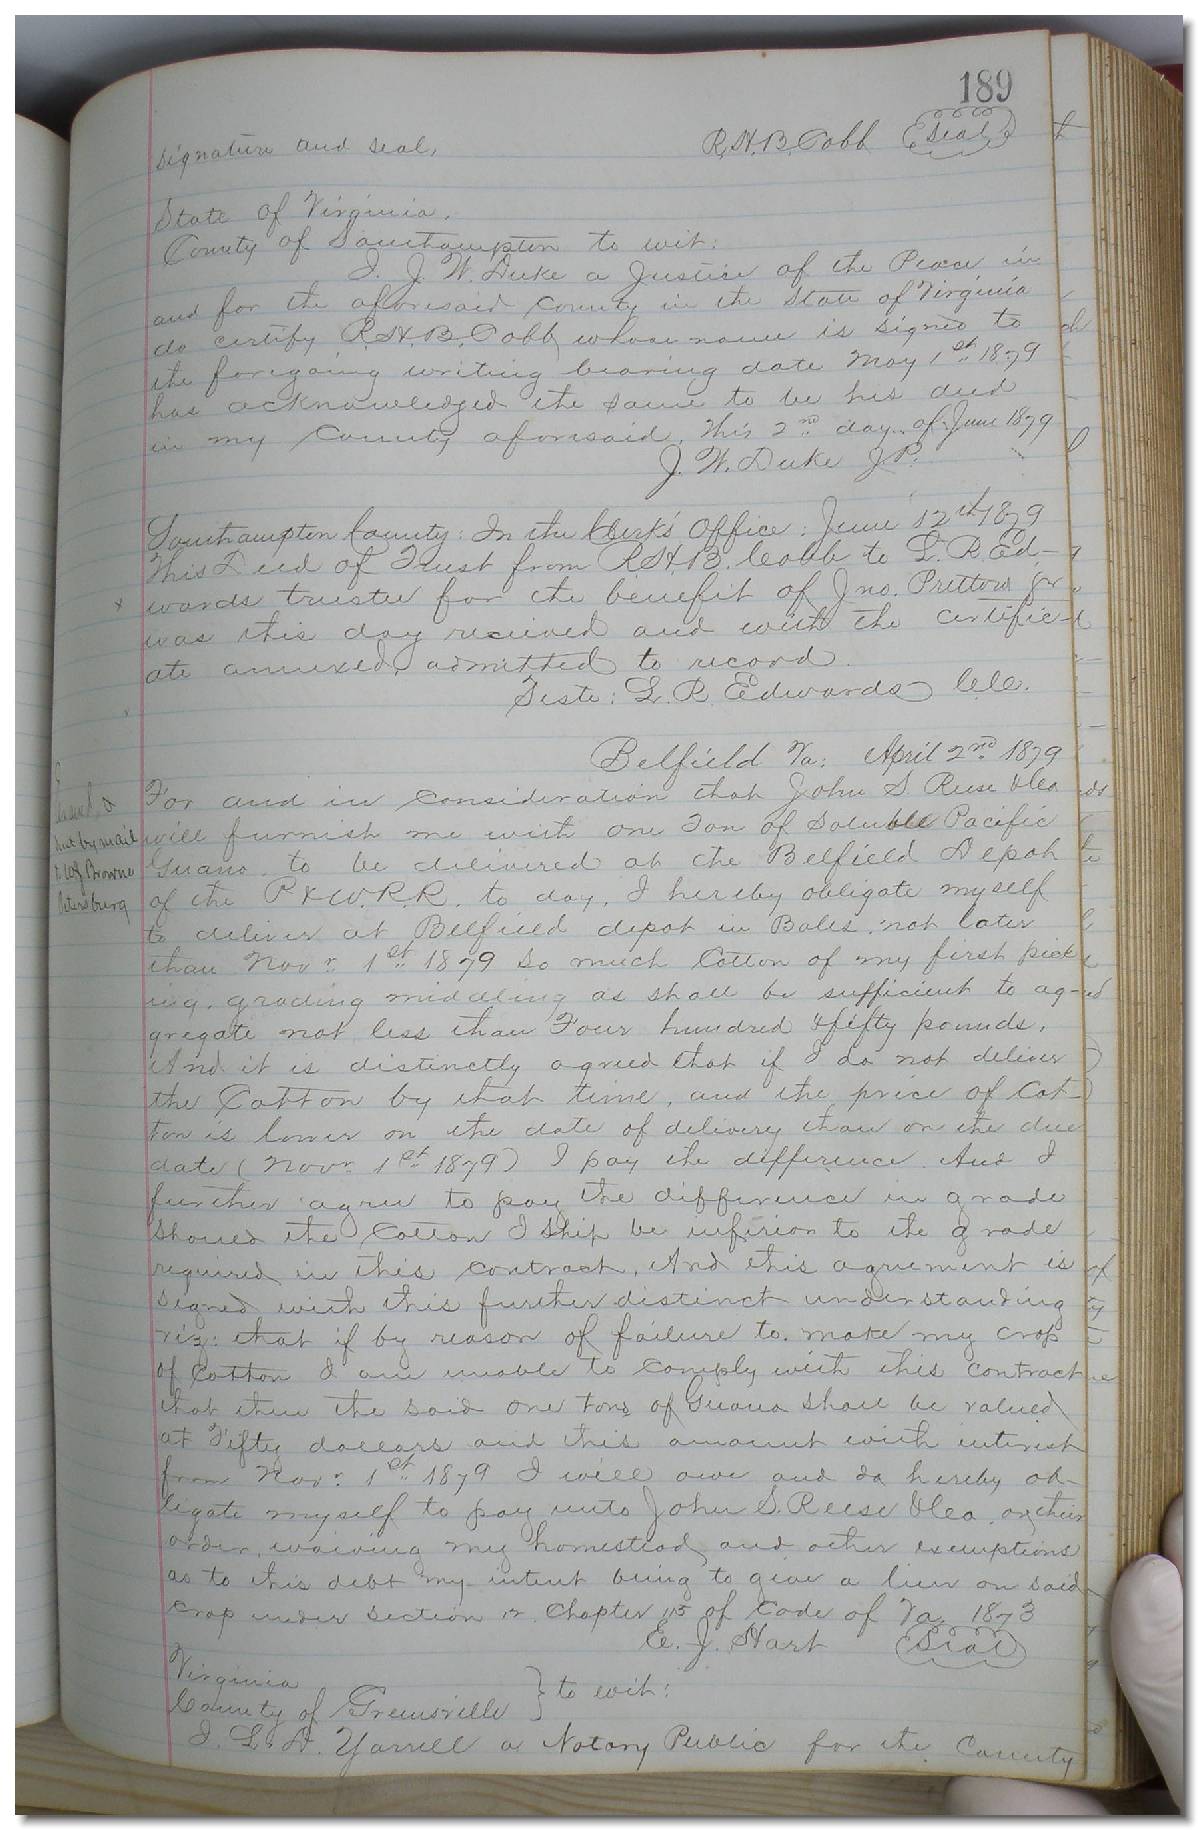 189
signature and seal, R. H. B. Cobb (Seal)
State of Virginia,
County of Southampton to wit:
I. J. W. Duke a Justice of the Peace in
and for the aforesaid County in the State of Virginia
do certify R. H. B. Cobb whose name is signed to
the foregoing writing bearing date May 1st 1879
has acknowledged the same to be his deed
in my County aforesaid, this 2nd day of June 1879
J. W. Duke J.P.
Southampton County: In the Clerk's Office: June 12th 1879
This Deed of Trust from R. H. B. Cobb to L. R. Ed-
wards trustee for the benefit of Jno. Pretlow Jr
was this day recieved and with the certific-
ate annexed, admitted to record.
Teste: L. R. Edwards
Belfield Va: April 2nd 1879
For and in consideration that John S Reese &Co
will furnish me with one Ton of Soluble Pacific
Guano, to be delivered at the Belfield Depot
of the P & W. R. R. to day, I hereby obligate myself
to deliver at Belfield depot in Bales, not later
than Novr. 1st 1879 so much Cotton of my first pick
ing, grading middling as shall be sufficient to ag-
gregate not less than Four hundred &fifty pounds,
And it is distinctly agreed that if I do not deliver
the Cotton by that time, and the price of Cot-
ton is lower on the date of delivery than on the due
date (Novr. 1st 1879) I pay the difference. And I
further agree to pay the difference in grade
should the Cotton I ship be inferior to the grade
required in this contract, And this agreement is
signed with this further distinct understanding
viz: that if by reason of failure to make my crop
of Cotton I am unable to comply with this contract
that then the said one tons of Guano shall be valued
at Fifty dollars and this amount with interest
from Novr. 1st 1879 I will owe and do hereby ob-
ligate myself to pay unto John S. Reese &Co, or their
order, waiving my homestead, and other exemptions
as to this debt my intent being to give a lien on said
crop under section 12 Chapter 115 of Code of Va. 1873
E. J. Hart (Seal)
Virginia
County of Greensville } to wit:
I. L. D. Yarrell a Notary Public for the County
by mail
Browne
Petersburg